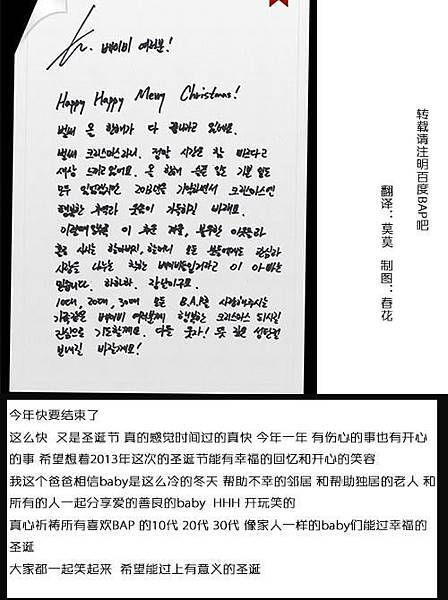 베이비 여러분!
Happy Happy Merry Christmas!
벌써 올 한해가 다 끝나가고 있네요.
벌써 크리스마스라니. 정말 시간은 참 빠르다고
새삼 느끼고있어요. 올 한해 슬픈 일도 기쁜 일도
모두 있었겠지만 2013년을 기억하면서 크리스마스엔
행복한 추억과 웃음이 가득하길 바래요.
이 추운 겨울, 불우한 이웃들과
혼자 사시는 할아버지, 할머니 모든 분들에게도 관심과
사랑을 나누는 착한 베이비들일거라고 이 아빠는
믿습니다. 하하하. 장난이구요.
10대, 20대, 30대 모든 B.A.P를 사랑해주시는
가족같은 베이비 여러분께 행복한 크리스마스 되시길
진심으로 기도할게요. 다들 웃자! 뜻 깊은 성탄절
보내길 바랄게요!
转载请注明百度BAP吧
翻译：莫莫 制图：春花
今年快要结束了
这么快 又是圣诞节 真的感觉时间过的真快 今年一年 有伤心的事也有开心
的事 希望想着2013年这次的圣诞节能有幸福的回忆和开心的笑容
我这个爸爸相信baby是这么冷的冬天 帮助不幸的邻居 和帮助独居的老人 和
所有的人一起分享爱的善良的baby HHH 开玩笑的
真心祈祷所有喜欢BAP 的10代 20代 30代 像家人一样的baby们能过幸福的
圣诞
大家都一起笑起来 希望能过上有意义的圣诞